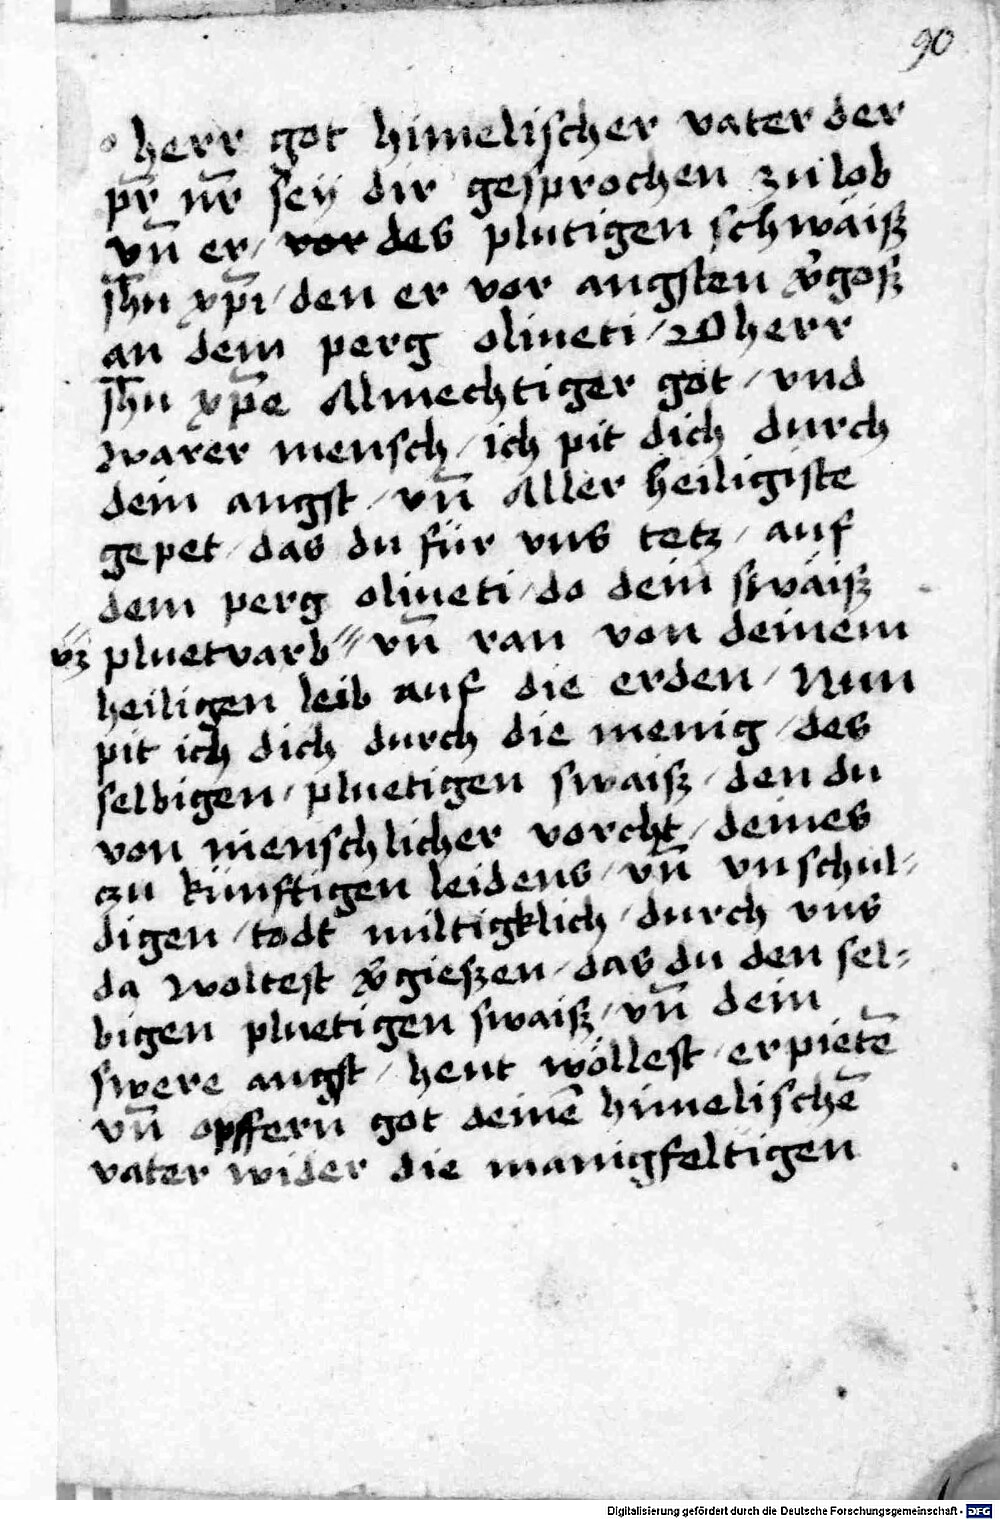 90
o herr got himelischer vater der
pr̄ nr̄ sey dir gesprochen zu lob
vn̄ er / vor des plutigen schwäisz
ih̄u xp̄i / den er vor angsten v̓gosz
an dem perg oliueti / O herr
ih̄u xp̄e Almechtiger got / vnd
warer mensch / ich pit dich durch
dein angst / vn̄ Aller heiligiste
gepet / das du für vns tetz / auf
dem perg oliueti / do dein swaisz
vz̄ pluetvarb〃 vn̄ ran von deinem
heiligen leib auf die erden / Nun
pit ich dich durch die menig / des
selbigen / pluetigen swaisz / den du
von menschlicher vorcht / deines
czu künftigen leidens / vn̄ vnschul-
digen / todt miltigklich / durch vns
da woltest v̓gieszen / das du den sel-
bigen pluetigen swaisz / vn̄ dein
swere angst / heut wöllest / erpietē
vn̄ opffern got deinē himelischē
vater wider die manigfeltigen
Digitalisierung gefördert durch die Deutsche Forschungsgemeinschaft - DFG